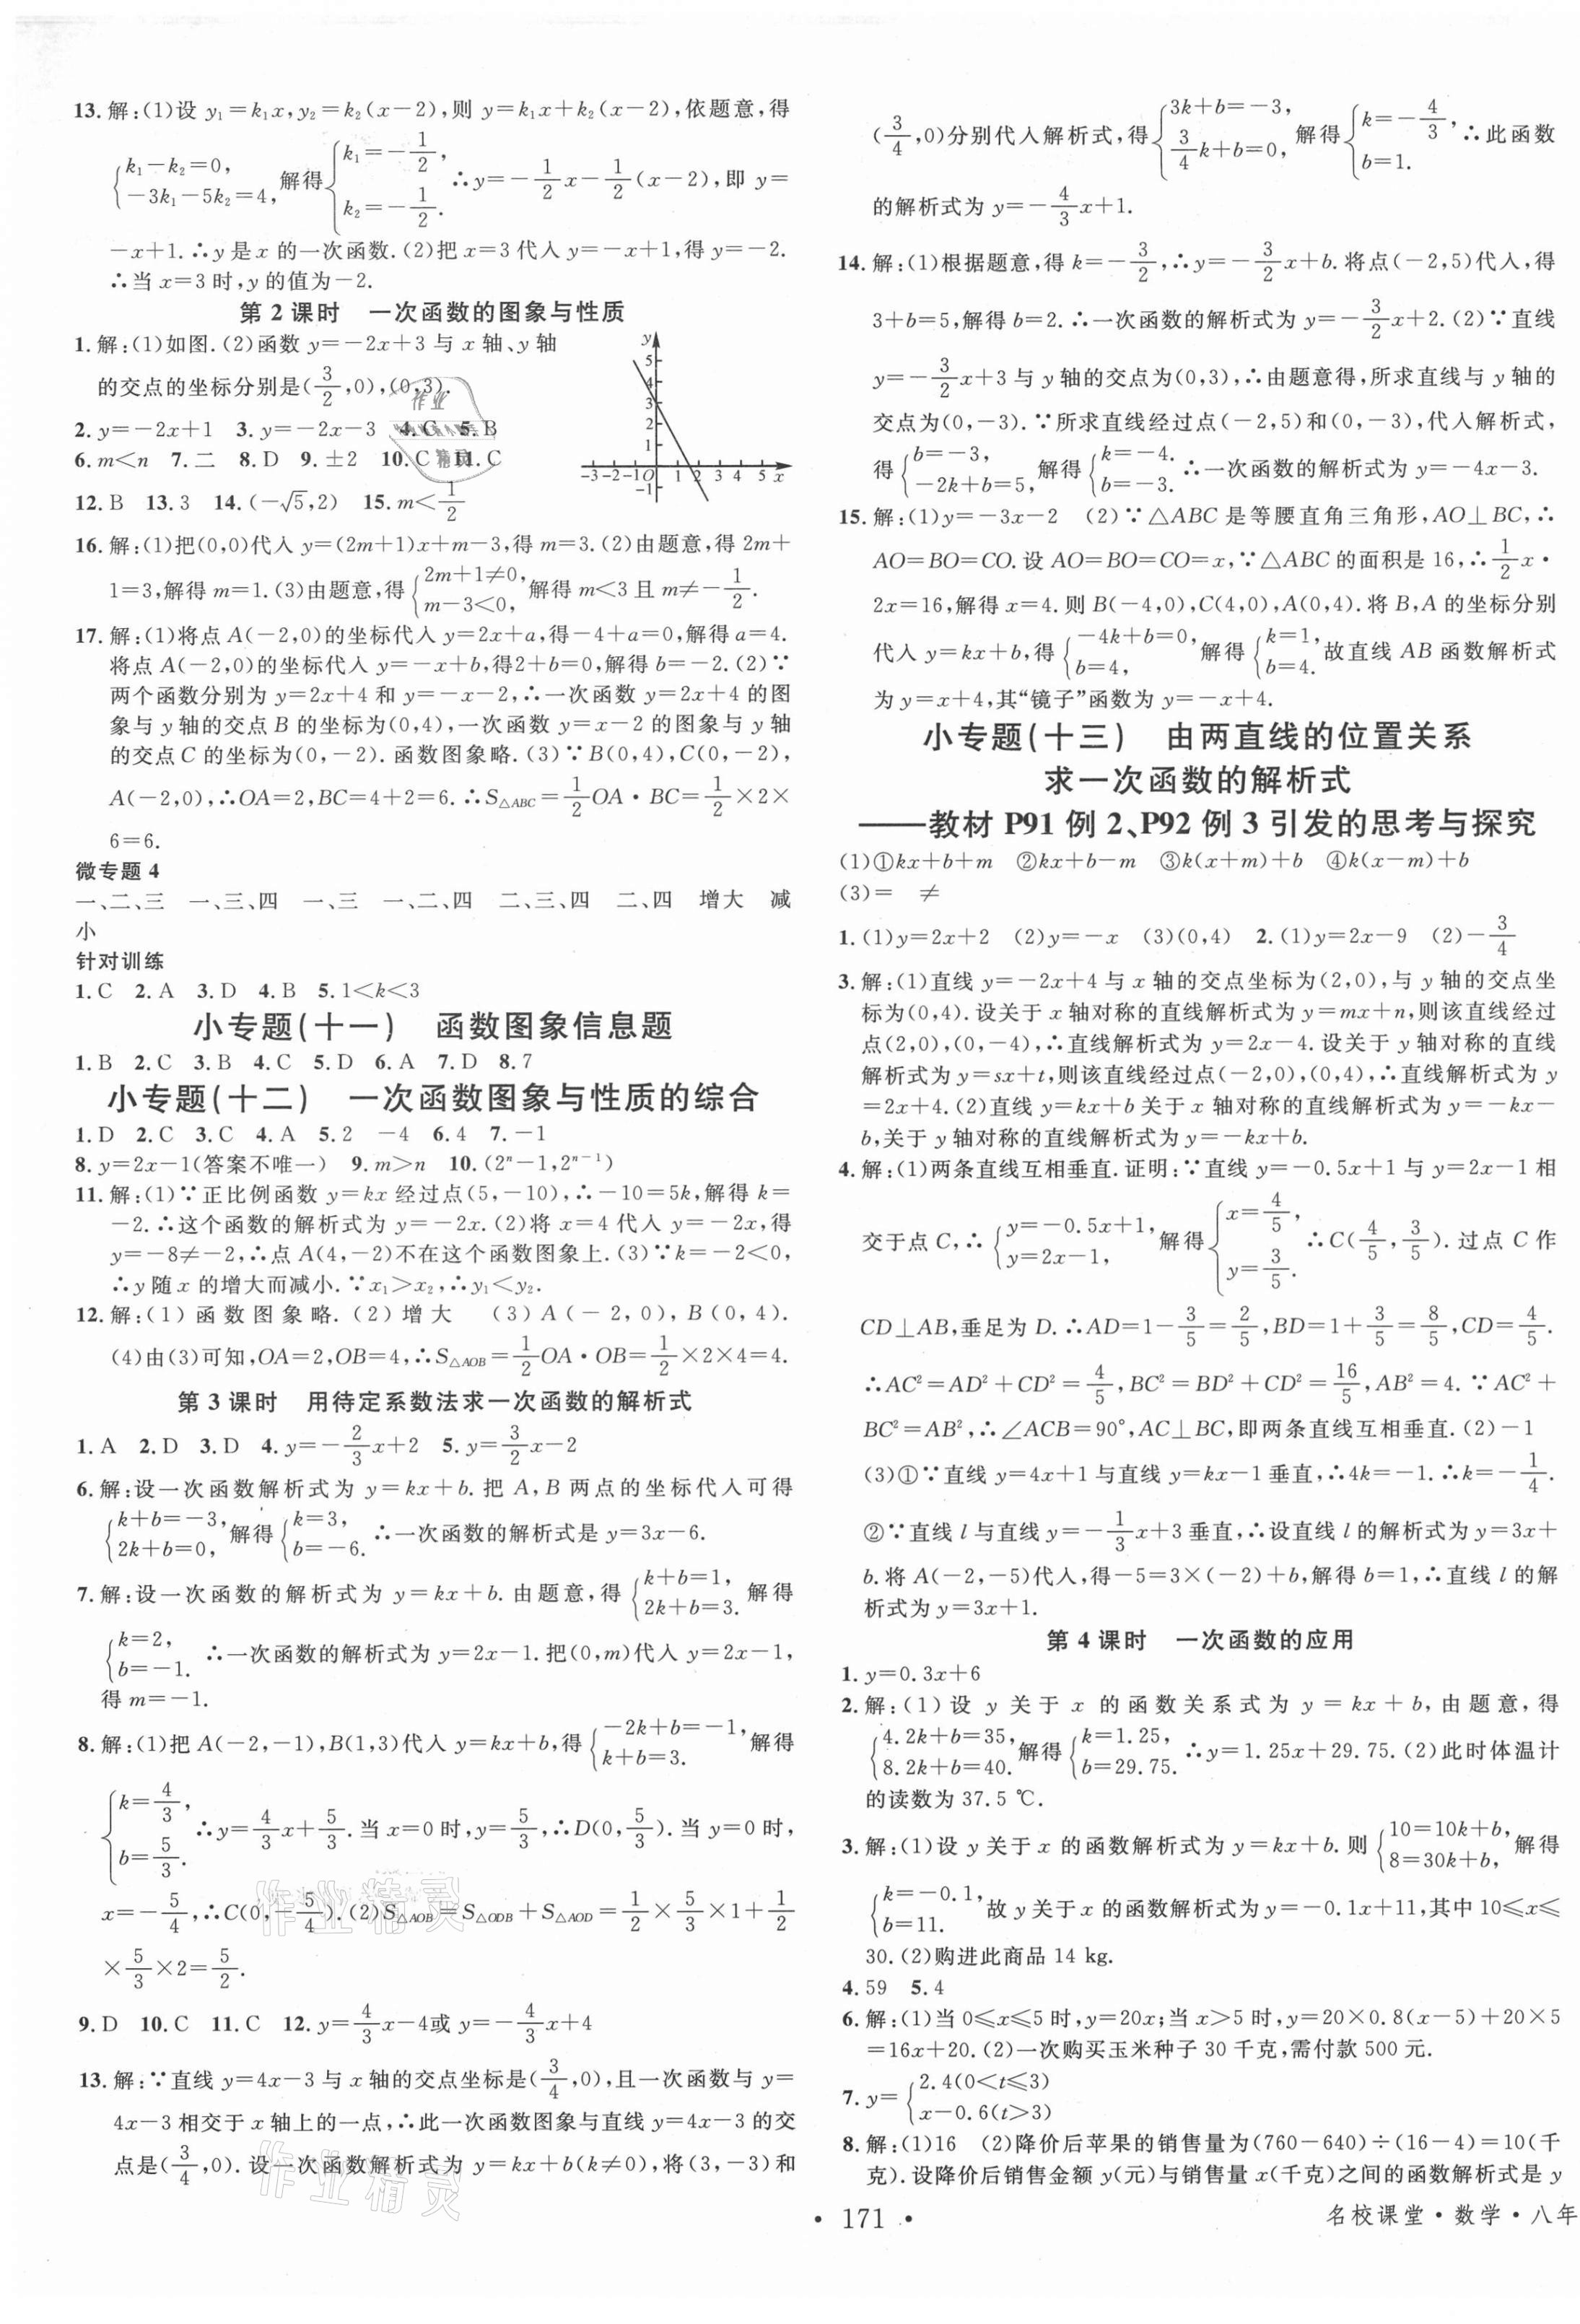 13.解:(1)设 y₁=k₁x,y₂=k₂(x-2),则 y=k₁x+k₂(x-2),依题意,得
{k₁-k₂=0, -3k₁-5k₂=4, 解得{k₁=-1/2, k₂=-1/2. ∴y=-1/2x-1/2(x-2),即 y=
-x+1.∴y是x的一次函数.(2)把x=3代入y=-x+1,得y=-2.
∴当x=3时,y的值为-2.
第2课时 一次函数的图象与性质
1.解:(1)如图.(2)函数y=-2x+3与x轴、y轴
的交点的坐标分别是(3/2,0),(0,3).
2.y=-2x+1 3.y=-2x-3 4.C 5.B
6.m<n 7.二 8.D 9.±2 10.C 11.C
12.B 13.3 14.(-√5,2) 15.m<1/2
y
5
4
3
2
1
-3-2-1O 1 2 3 4 5 x
-1
16.解:(1)把(0,0)代入y=(2m+1)x+m-3,得m=3.(2)由题意,得2m+
1=3,解得m=1.(3)由题意,得{2m+1≠0, m-3<0, 解得m<3且m≠-1/2.
17.解:(1)将点A(-2,0)的坐标代入y=2x+a,得-4+a=0,解得a=4.
将点A(-2,0)的坐标代入y=-x+b,得2+b=0,解得b=-2.(2)∵
两个函数分别为y=2x+4和y=-x-2,∴一次函数y=2x+4的图
象与y轴的交点B的坐标为(0,4),一次函数y=x-2的图象与y轴
的交点C的坐标为(0,-2).函数图象略.(3)∵B(0,4),C(0,-2),
A(-2,0),∴OA=2,BC=4+2=6.∴S△ABC=1/2OA·BC=1/2×2×
6=6.
微专题4
一、二、三 一、三、四 一、三 一、二、四 二、三、四 二、四 增大 减
小
针对训练
1.C 2.A 3.D 4.B 5.1<k<3
小专题(十一) 函数图象信息题
1.B 2.C 3.B 4.C 5.D 6.A 7.D 8.7
小专题(十二) 一次函数图象与性质的综合
1.D 2.C 3.C 4.A 5.2 -4 6.4 7.-1
8.y=2x-1(答案不唯一) 9.m>n 10.(2ⁿ-1,2ⁿ⁻¹)
11.解:(1)∵正比例函数y=kx经过点(5,-10),∴-10=5k,解得k=
-2.∴这个函数的解析式为y=-2x.(2)将x=4代入y=-2x,得
y=-8≠-2,∴点A(4,-2)不在这个函数图象上.(3)∵k=-2<0,
∴y随x的增大而减小.∵x₁>x₂,∴y₁<y₂.
12.解:(1)函数图象略.(2)增大 (3)A(-2,0),B(0,4).
(4)由(3)可知,OA=2,OB=4,∴S△AOB=1/2OA·OB=1/2×2×4=4.
第3课时 用待定系数法求一次函数的解析式
1.A 2.D 3.D 4.y=-2/3x+2 5.y=3/2x-2
6.解:设一次函数解析式为y=kx+b.把A,B两点的坐标代入可得
{k+b=-3, 2k+b=0, 解得{k=3, b=-6. ∴一次函数的解析式是y=3x-6.
7.解:设一次函数的解析式为y=kx+b.由题意,得{k+b=1, 2k+b=3. 解得
{k=2, b=-1. ∴一次函数的解析式为y=2x-1.把(0,m)代入y=2x-1,
得m=-1.
8.解:(1)把A(-2,-1),B(1,3)代入y=kx+b,得{-2k+b=-1, k+b=3. 解得
{k=4/3, b=5/3. ∴y=4/3x+5/3.当x=0时,y=5/3,∴D(0,5/3).当y=0时,
x=-5/4,∴C(0,-5/4).(2)S△AOB=S△ODB+S△AOD=1/2×5/3×1+1/2
×5/3×2=5/2.
9.D 10.C 11.C 12.y=4/3x-4或y=-4/3x+4
13.解:∵直线y=4x-3与x轴的交点坐标是(3/4,0),且一次函数与y=
4x-3相交于x轴上的一点,∴此一次函数图象与直线y=4x-3的交
点是(3/4,0).设一次函数解析式为y=kx+b(k≠0),将(3,-3)和
(3/4,0)分别代入解析式,得{3k+b=-3, 3/4k+b=0, 解得{k=-4/3, b=1. ∴此函数
的解析式为y=-4/3x+1.
14.解:(1)根据题意,得k=-3/2,∴y=-3/2x+b.将点(-2,5)代入,得
3+b=5,解得b=2.∴一次函数的解析式为y=-3/2x+2.(2)∵直线
y=-3/2x+3与y轴的交点为(0,3),∴由题意得,所求直线与y轴的
交点为(0,-3).∵所求直线经过点(-2,5)和(0,-3),代入解析式,
得{b=-3, -2k+b=5, 解得{k=-4. b=-3. ∴一次函数的解析式为y=-4x-3.
15.解:(1)y=-3x-2 (2)∵△ABC是等腰直角三角形,AO⊥BC,∴
AO=BO=CO.设AO=BO=CO=x,∵△ABC的面积是16,∴1/2x·
2x=16,解得x=4.则B(-4,0),C(4,0),A(0,4).将B,A的坐标分别
代入y=kx+b,得{-4k+b=0, b=4, 解得{k=1, b=4. 故直线AB函数解析式
为y=x+4,其“镜子”函数为y=-x+4.
小专题(十三) 由两直线的位置关系
求一次函数的解析式
——教材P91例2、P92例3引发的思考与探究
(1)①kx+b+m ②kx+b-m ③k(x+m)+b ④k(x-m)+b
(3)= ≠
1.(1)y=2x+2 (2)y=-x (3)(0,4) 2.(1)y=2x-9 (2)-3/4
3.解:(1)直线y=-2x+4与x轴的交点坐标为(2,0),与y轴的交点坐
标为(0,4).设关于x轴对称的直线解析式为y=mx+n,则该直线经过
点(2,0),(0,-4),∴直线解析式为y=2x-4.设关于y轴对称的直线
解析式为y=sx+t,则该直线经过点(-2,0),(0,4),∴直线解析式为y
=2x+4.(2)直线y=kx+b关于x轴对称的直线解析式为y=-kx-
b,关于y轴对称的直线解析式为y=-kx+b.
4.解:(1)两条直线互相垂直.证明:∵直线y=-0.5x+1与y=2x-1相
交于点C,∴{y=-0.5x+1, y=2x-1, 解得{x=4/5, y=3/5. ∴C(4/5,3/5).过点C作
CD⊥AB,垂足为D.∴AD=1-3/5=2/5,BD=1+3/5=8/5,CD=4/5.
∴AC²=AD²+CD²=4/5,BC²=BD²+CD²=16/5,AB²=4.∵AC²+
BC²=AB²,∴∠ACB=90°,AC⊥BC,即两条直线互相垂直.(2)-1
(3)①∵直线y=4x+1与直线y=kx-1垂直,∴4k=-1.∴k=-1/4.
②∵直线l与直线y=-1/3x+3垂直,∴设直线l的解析式为y=3x+
b.将A(-2,-5)代入,得-5=3×(-2)+b,解得b=1,∴直线l的解
析式为y=3x+1.
第4课时 一次函数的应用
1.y=0.3x+6
2.解:(1)设y关于x的函数关系式为y=kx+b,由题意,得
{4.2k+b=35, 8.2k+b=40. 解得{k=1.25, b=29.75. ∴y=1.25x+29.75.(2)此时体温计
的读数为37.5 ℃.
3.解:(1)设y关于x的函数解析式为y=kx+b.则{10=10k+b, 8=30k+b, 解得
{k=-0.1, b=11. 故y关于x的函数解析式为y=-0.1x+11,其中10≤x≤
30.(2)购进此商品14 kg.
4.59 5.4
6.解:(1)当0≤x≤5时,y=20x;当x>5时,y=20×0.8(x-5)+20×5
=16x+20.(2)一次购买玉米种子30千克,需付款500元.
7.y={2.4(0<t≤3) x-0.6(t>3)
8.解:(1)16 (2)降价后苹果的销售量为(760-640)÷(16-4)=10(千
克).设降价后销售金额y(元)与销售量x(千克)之间的函数解析式是y
· 171 ·
名校课堂·数学·八年
作业精灵
作业精灵
作业精灵